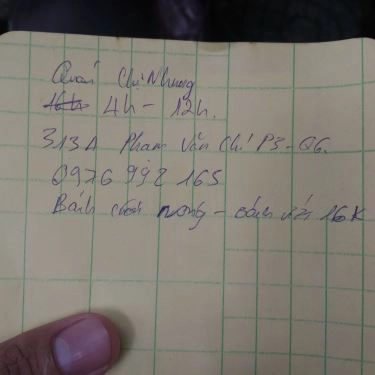 Quán Chị Nhung
16h 4h - 12h.
313A Phạm Văn Chí P3-Q6.
0976 992 165
Bánh nóng - bánh 16K